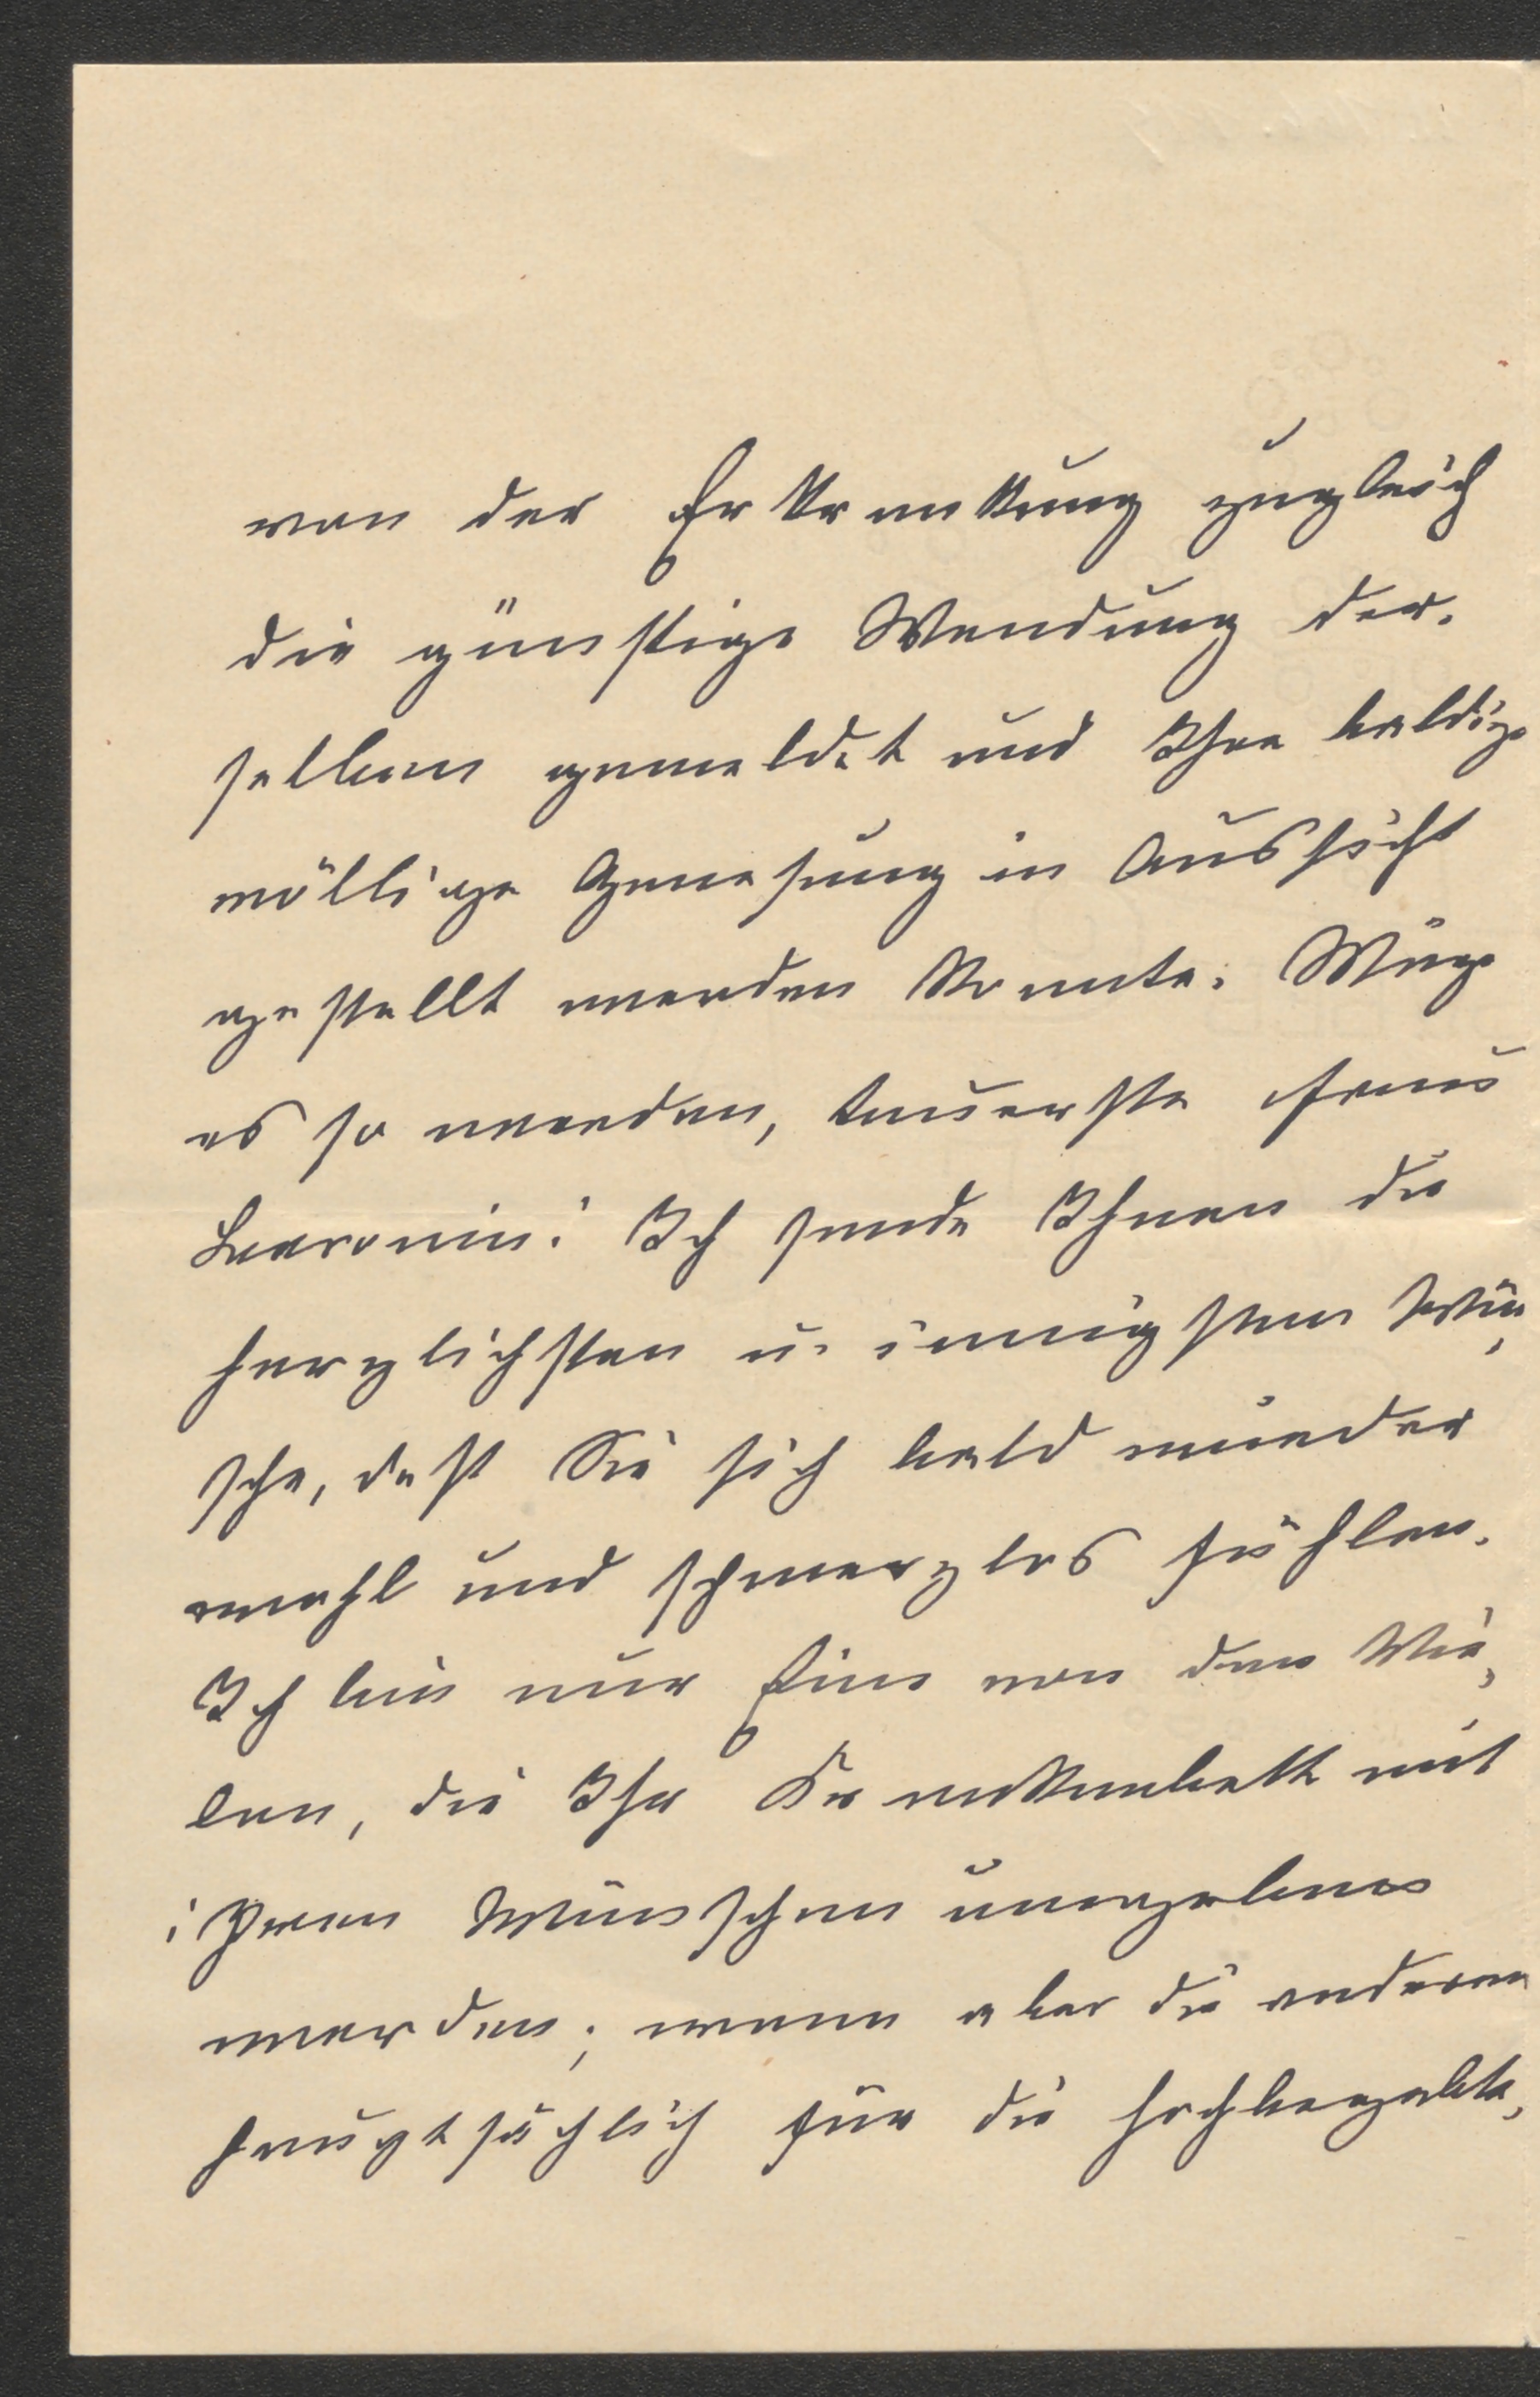 von der Erkrankung zugleich
die günstige Wendung der-
selben gemeldet und Ihre baldige
völlige Genesung in Aussicht
gestellt werden konnte. Möge
es so werden, teuerste Frau
Baronin! Ich sende Ihnen die
herzlichsten u. innigsten Wün-
sche, daß Sie sich bald wieder
wohl und schmerzlos fühlen.
Ich bin nur Eine von den Vie-
len, die Ihr Krankenbett mit
ihren Wünschen umgeben
werden; wenn aber die anderen
hauptsächlich für die hochbegabte,